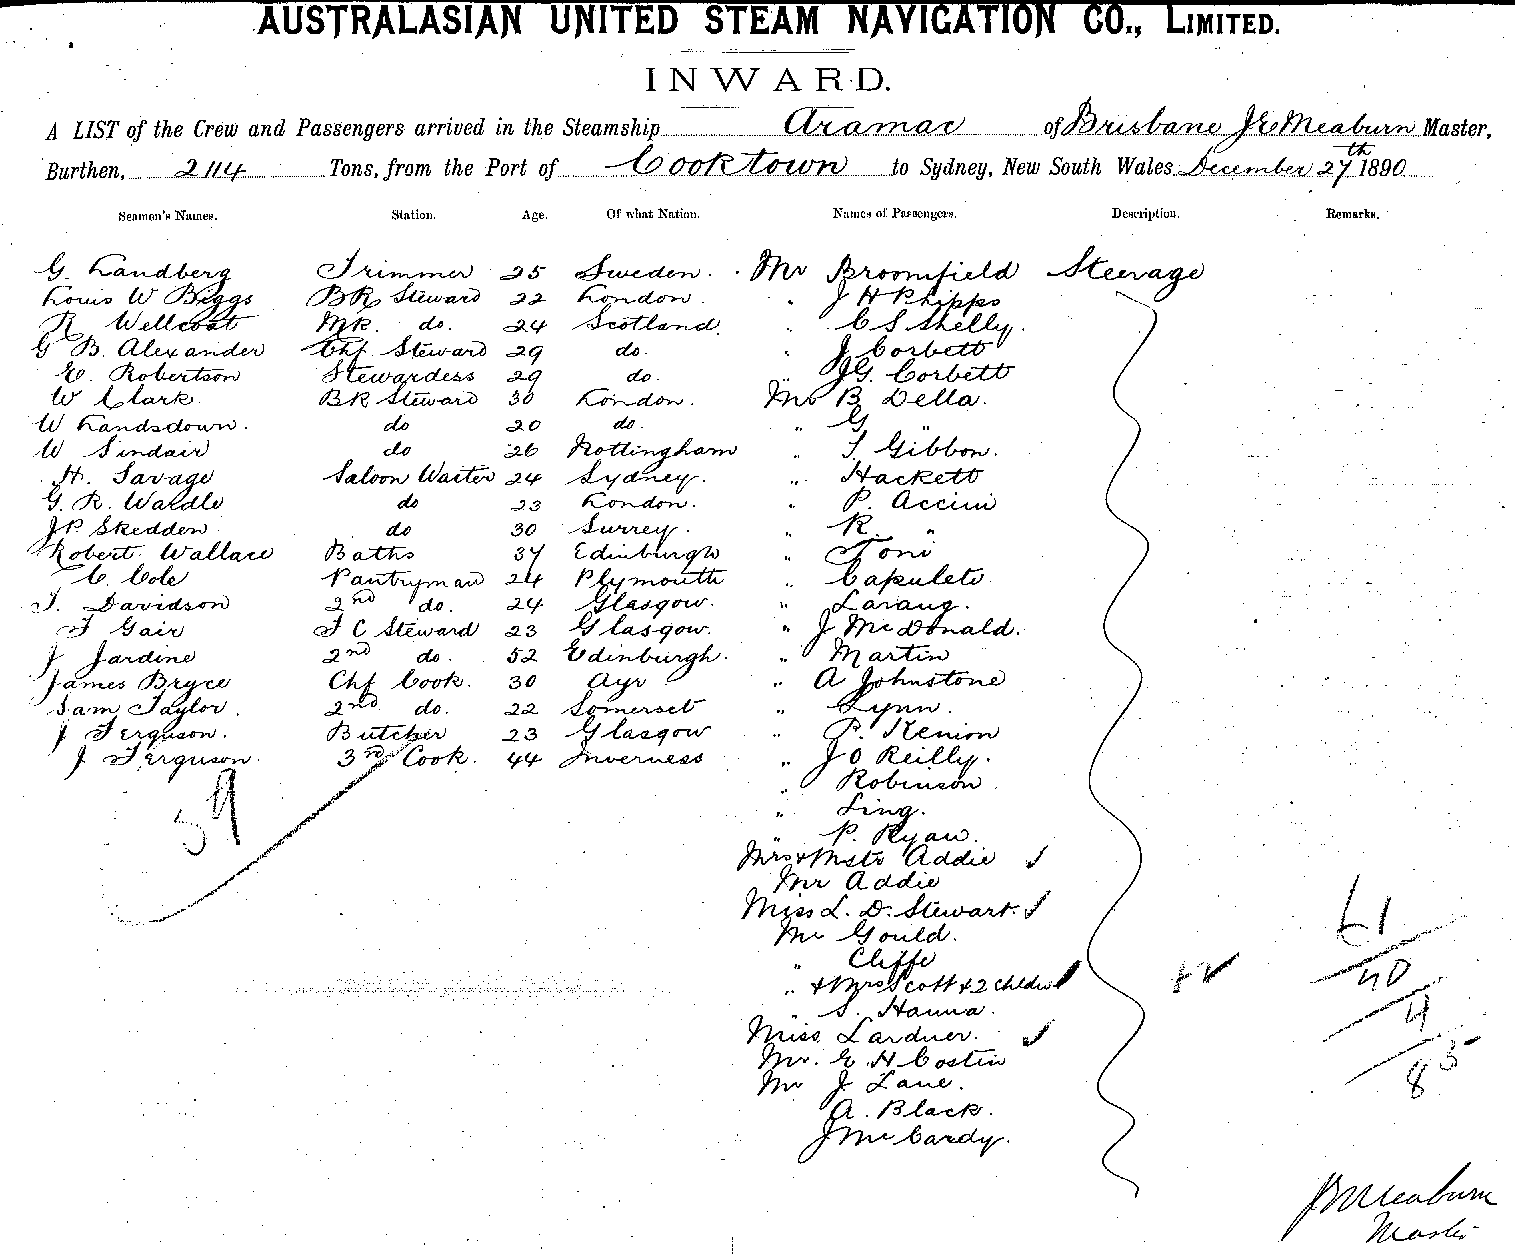 AUSTRALASIAN UNITED STEAM NAVIGATION CO., LIMITED.
INWARD.
A LIST of the Crew and Passengers arrived in the Steamship Aramac of Brisbane J E Meaburn Master,
Burthen, 2114 Tons, from the Port of Cooktown to Sydney, New South Wales December 27th 1890
Seamen's Names. Station. Age. Of what Nation. Names of Passengers. Description. Remarks.
G. Landberg Trimmer 25 Sweden. Mr Broomfield Steerage
Louis W Biggs BR Steward 22 London. " J H Phipps
R Wellcoat Mk. do. 24 Scotland. " C S Shelly.
G B. Alexander Chf Steward 29 do. " J Corbett
E. Robertson Stewardess 29 do. " J G. Corbett
W Clark BR Steward 30 London. Mr B Della.
W Landsdown. do 20 do. " G "
W Sindair do 26 Nottingham " T. Gibbon.
H. Savage Saloon Waiter 24 Sydney. " Hackett
G. R. Wardle do 23 London. " P. Accini
J P. Skedden do 30 Surrey. " R. "
Robert Wallace Baths 37 Edinburgh " Toni
C. Cole Pantryman 24 Plymouth " Capulets
T. Davidson 2nd do. 24 Glasgow. "
T Gair T C Steward 23 Glasgow. " J McDonald.
J Jardine 2nd do. 52 Edinburgh. " Martin
James Bryce Chf Cook. 30 Ayr " A Johnstone
Sam Taylor. 2nd do. 22 Somerset " Lynn.
J Ferguson. Butcher 23 Glasgow " P. Kenion
J. Ferguson. 3rd Cook. 44 Inverness " J O Reilly.
" Robinson
" Ling.
59 " P. Ryan.
Mrs & Mstr Addie
Mr Addie
Miss L. D. Stewart.
Mr Gould. 61
" Cliffe 20
" & Mrs Scott & 2 children
" S. Hanna. 4
Miss Lardner.
Mr. E H Costin
Mr J Lane. 85
A. Black.
J McCardy.
J E Meaburn
Master